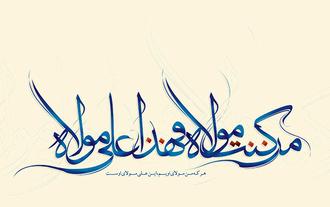 من كنت مولاه و هذا علی مولاه
هر که من مولای اویم، این علی مولای اوست